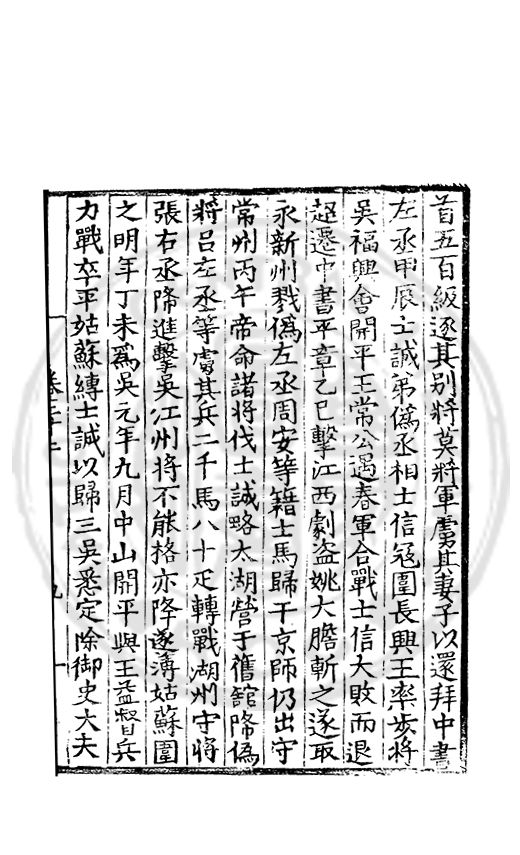 首五百級逐其别將莫將軍虜其妻子以還拜中書
左丞甲辰士誠弟偽丞相士信寇圍長興王率步將
吳福興會開平王常公遇春軍合戰士信大敗而退
超遷中書平章乙巳擊江西劇盗姚大膽斬之遂取
永新州戮偽左丞周安等籍士馬歸于京師仍出守
常州丙午帝命諸將伐士誠略太湖營于舊舘降偽
將吕左丞等虜其兵二千馬八十疋轉戰湖州守將
張右丞降進擊吳江州將不能格亦降遂薄姑蘇圍
之明年丁未為吳元年九月中山開平與王益督兵
力戰卒平姑蘇縛士誠以歸三吳悉定除御史大夫
卷二十二
九